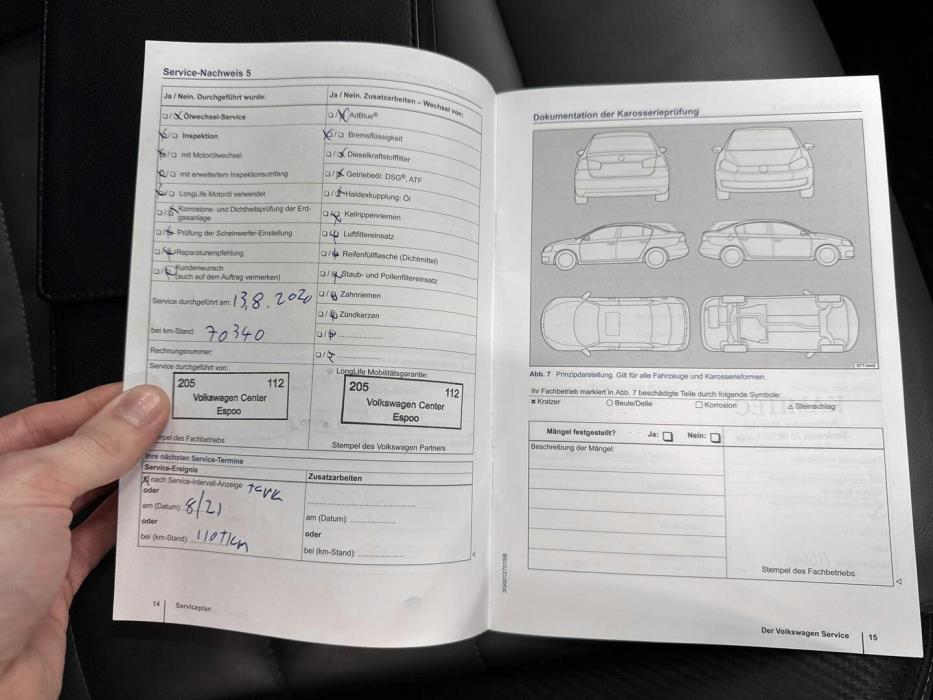 Service-Nachweis 5
Ja / Nein. Durchgeführt wurde:
Ölwechsel-Service
Inspektion
mit Motorölwechsel
mit erweitertem Inspektionsumfang
LongLife Motoröl verwendet
Korrosions- und Dichtheitsprüfung der Erd-
gasanlage
Prüfung der Scheinwerfer-Einstellung
Reparaturempfehlung
Kundenwunsch
(auch auf dem Auftrag vermerken)
Service durchgeführt am: 13.8.2020
bei km-Stand: 70340
Rechnungsnummer:
Service durchgeführt von:
205 112
Volkswagen Center
Espoo
Stempel des Fachbetriebs
Ja / Nein. Zusatzarbeiten – Wechsel von:
AdBlue®
Bremsflüssigkeit
Dieselkraftstofffilter
Getriebeöl: DSG®, ATF
Haldexkupplung: Öl
Keilrippenriemen
Luftfiltereinsatz
Reifenfüllflasche (Dichtmittel)
Staub- und Pollenfiltereinsatz
Zahnriemen
Zündkerzen
LongLife Mobilitätsgarantie:
205 112
Volkswagen Center
Espoo
Stempel des Volkswagen Partners
Ihre nächsten Service-Termine
Service-Ereignis
nach Service-Intervall-Anzeige
oder
am (Datum): 8/21
oder
bei (km-Stand): 110Tkm
Zusatzarbeiten
am (Datum):
oder
bei (km-Stand):
14 Serviceplan
Dokumentation der Karosserieprüfung
Abb. 7 Prinzipdarstellung. Gilt für alle Fahrzeuge und Karosserieformen.
Ihr Fachbetrieb markiert in Abb. 7 beschädigte Teile durch folgende Symbole:
× Kratzer ○ Beule/Delle □ Korrosion △ Steinschlag
Mängel festgestellt? Ja: □ Nein: □
Beschreibung der Mängel:
Stempel des Fachbetriebs
3G0012701SB
Der Volkswagen Service 15